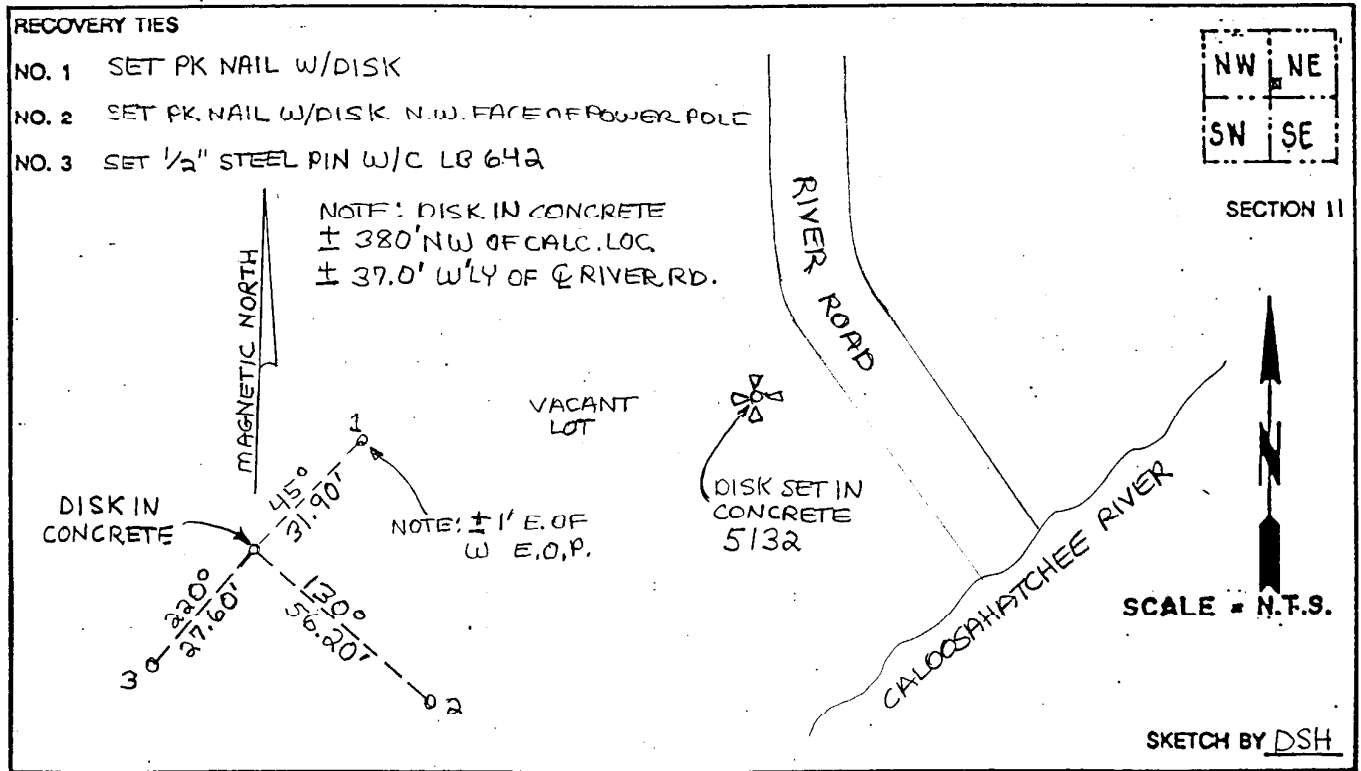 RECOVERY TIES
NO. 1 SET PK NAIL W/DISK
NO. 2 SET PK. NAIL W/DISK N.W. FACE OF POWER POLE
NO. 3 SET 1/2" STEEL PIN W/C LB 642
NW NE
SW SE
SECTION 11
NOTE: DISK IN CONCRETE
± 380' NW OF CALC. LOC.
± 37.0' W'LY OF ℄ RIVER RD.
MAGNETIC NORTH
RIVER ROAD
VACANT
LOT
1
45°
31.90'
DISK IN
CONCRETE
NOTE: ± 1' E. OF
W E.O.P.
DISK SET IN
CONCRETE
5132
N
220°
27.60'
130°
56.20'
3
2
CALOOSAHATCHEE RIVER
SCALE = N.T.S.
SKETCH BY DSH